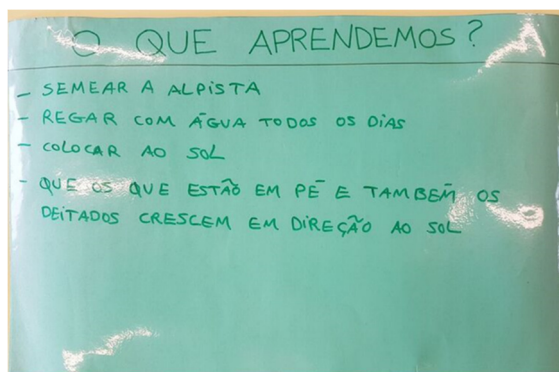 O QUE APRENDEMOS?
- SEMEAR A ALPISTA
- REGAR COM ÁGUA TODOS OS DIAS
- COLOCAR AO SOL
- QUE OS QUE ESTÃO EM PÉ E TAMBÉM OS
DEITADOS CRESCEM EM DIREÇÃO AO SOL